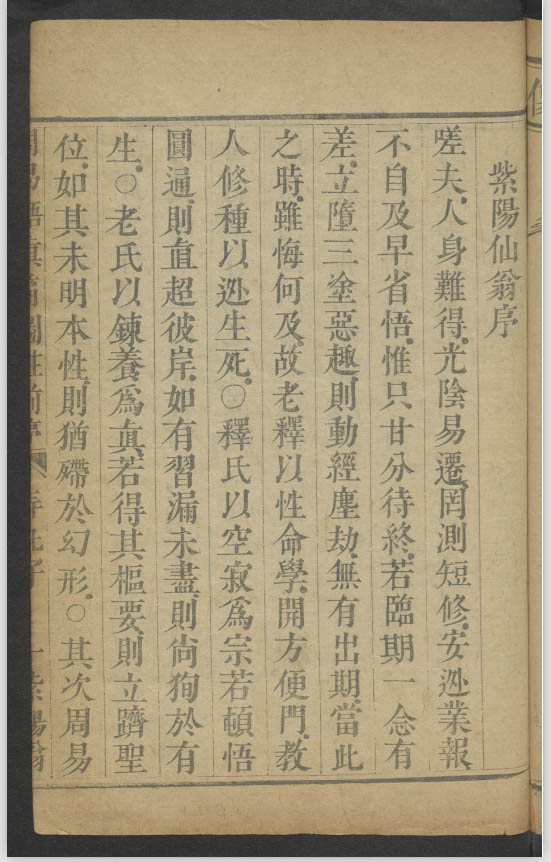 紫陽仙翁序
嗟夫人身難得光陰易遷罔測短修安逃業報
不自及早省悟惟只甘分待終若臨期一念有
差立墮三塗惡趣則動經塵劫無有出期當此
之時雖悔何及故老釋以性命學開方便門教
人修種以逃生死○釋氏以空寂為宗若頓悟
圓通則直超彼岸如有習漏未盡則尚狥於有
生○老氏以鍊養為真若得其樞要則立躋聖
位如其未明本性則猶𤸪於幻形○其次周易